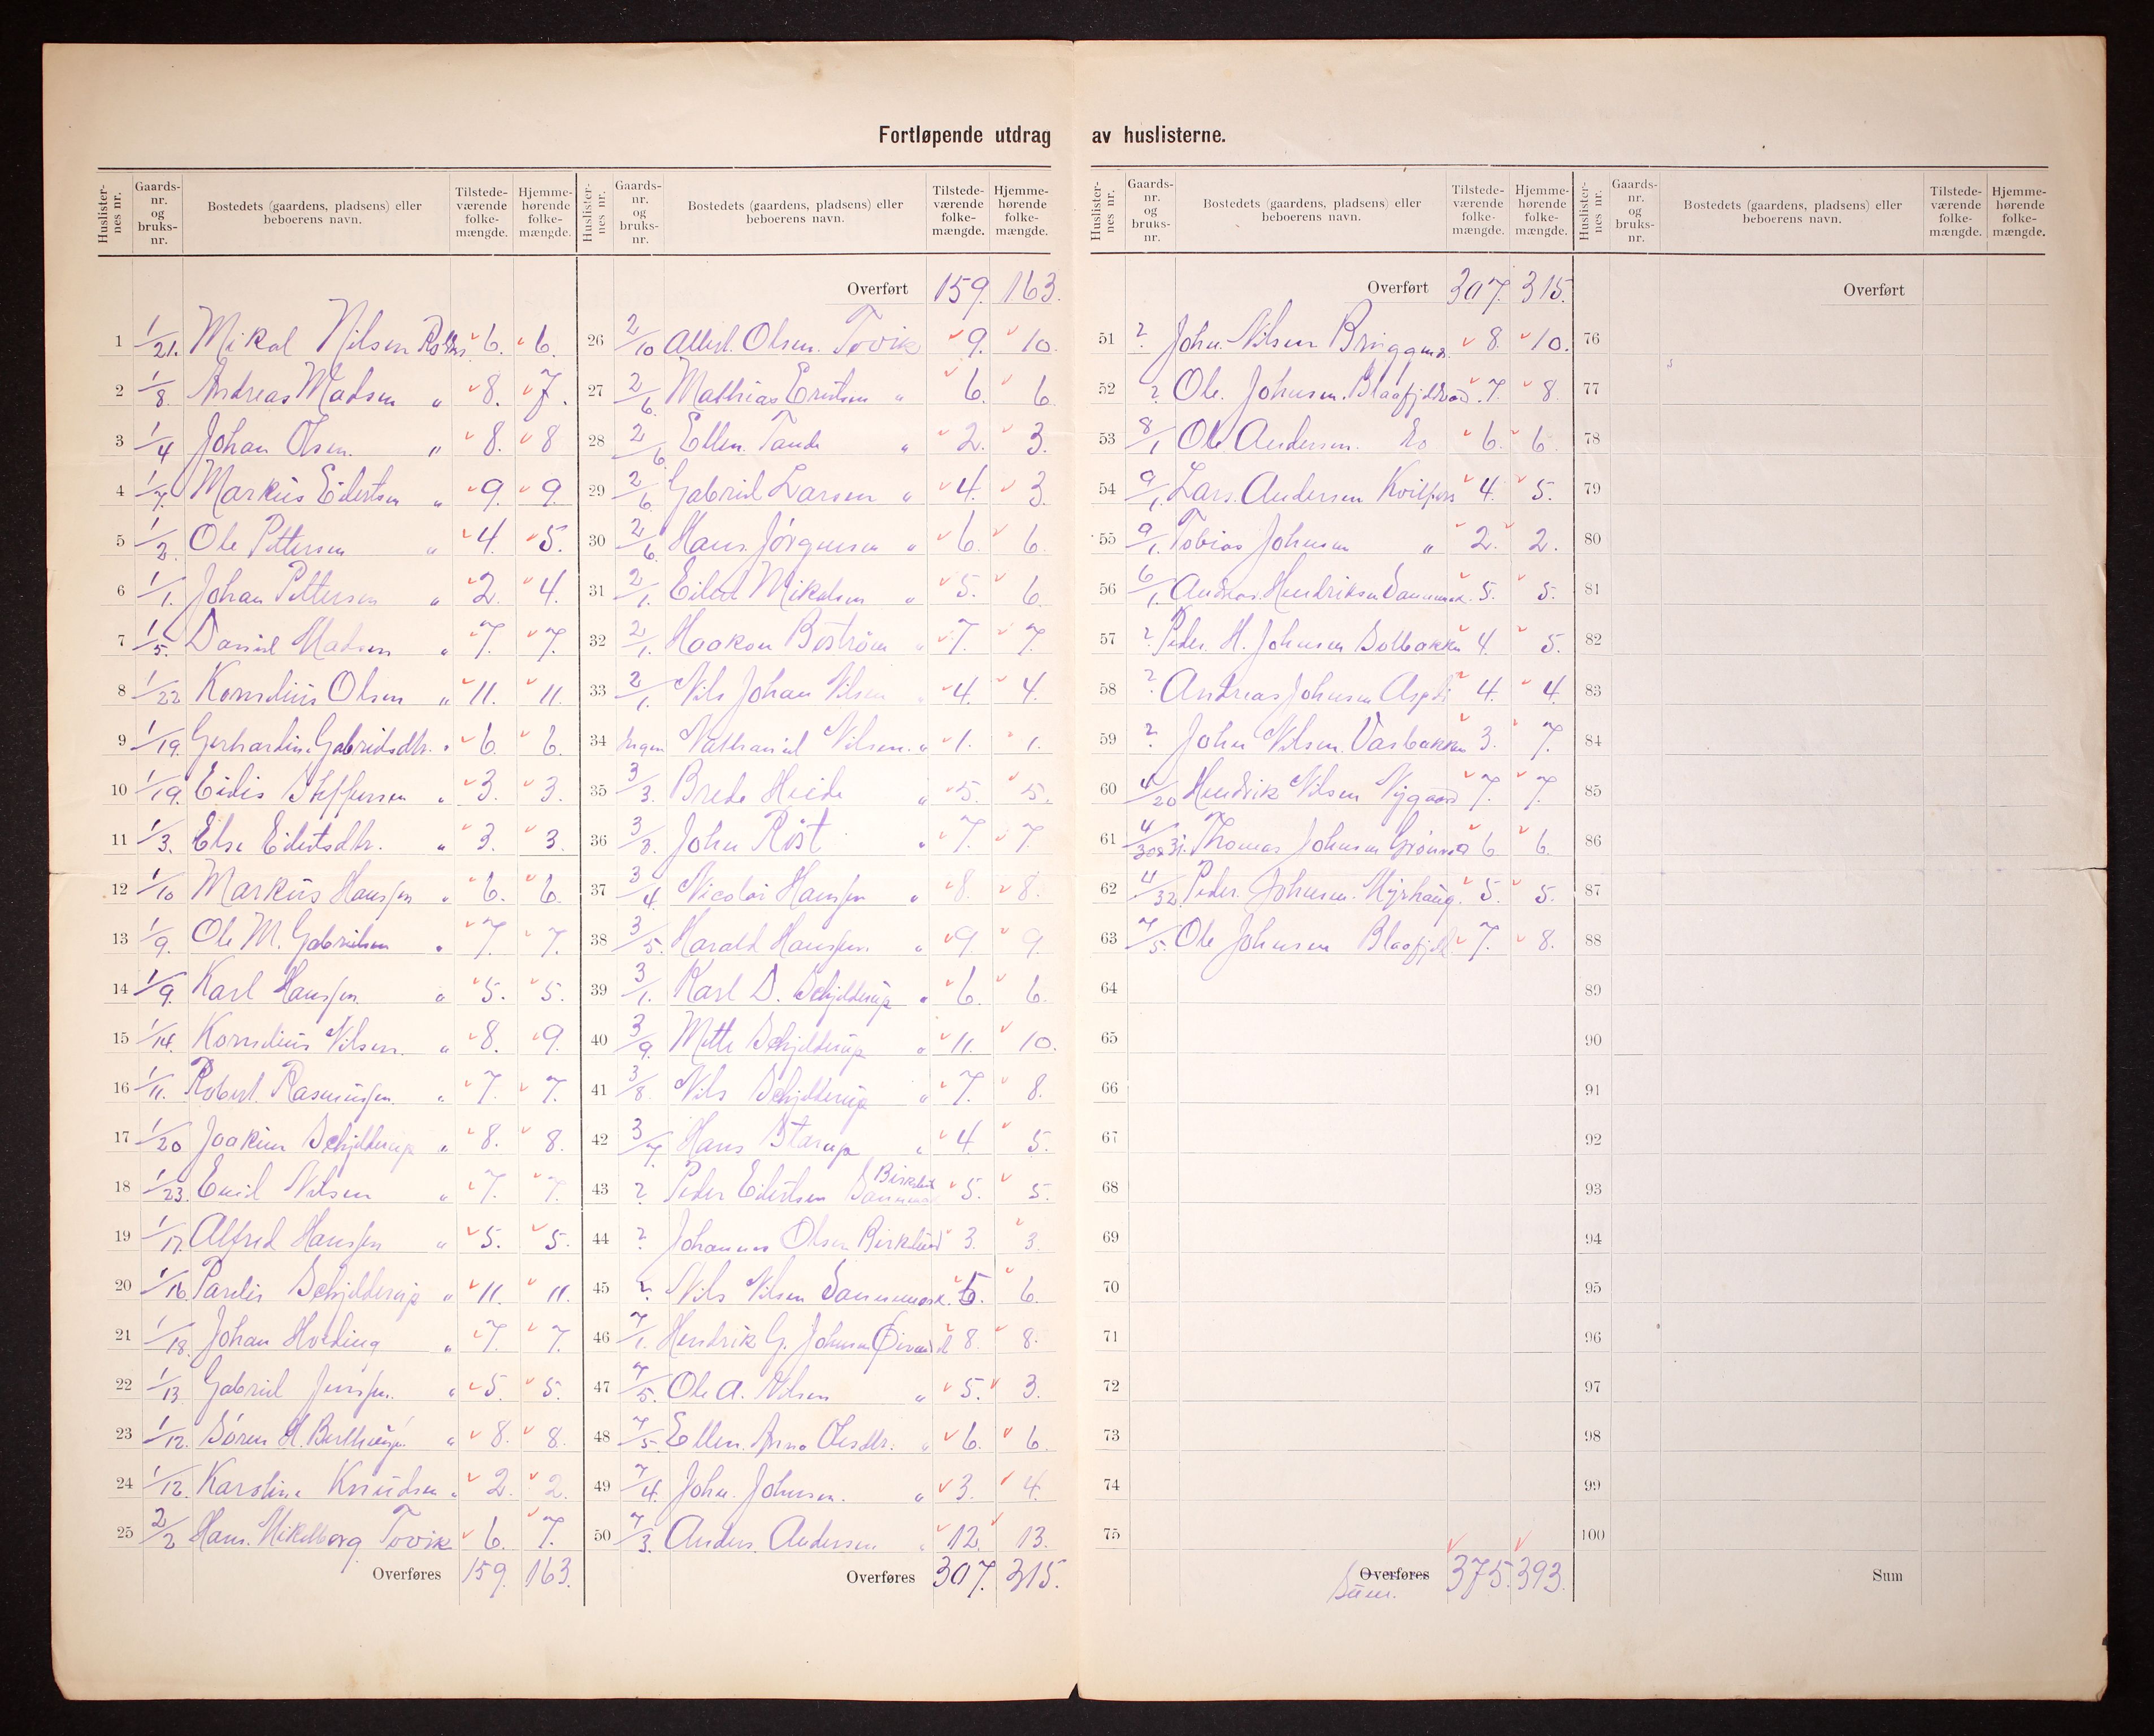 Fortløpende utdrag av huslisterne.
Huslister-nes nr. Gaards-nr. og bruks-nr. Bostedets (gaardens, pladsens) eller beboerens navn. Tilstede-værende folke-mængde. Hjemme-hørende folke-mængde.
1 1/21. Mikal Nilsen 6. 6.
2 1/8. Andreas Madsen " 8. 7.
3 1/4 Johan Olsen. " 8. 8
4 1/7. Markus Eilertsen " 9. 9.
5 1/2. Ole Pettersen " 4. 5.
6 1/1. Johan Pettersen " 2. 4.
7 1/5. Daniel Madsen " 7. 7.
8 1/22 Kornelius Olsen " 11. 11.
9 1/19. Gerhardine Gabrielsdtr. " 6. 6.
10 1/19. Edis Steffensen " 3. 3.
11 1/3. Else Eilertsdtr. " 3. 3.
12 1/10 Markus Hanssen " 6. 6.
13 1/9. Ole M. Gabrielsen " 7. 7.
14 1/9. Karl Hanssen " 5. 5.
15 1/14. Kornelius Nilsen. " 8. 9.
16 1/11. Robert. Rasmussen. " 7. 7.
17 1/20 Joakim Schjelderup " 8. 8.
18 1/23. Emil Nilsen " 7. 7.
19 1/17. Alfred Hanssen " 5. 5.
20 1/16. Parelis Schjelderup " 11. 11.
21 1/18. Johan Hveding " 7. 7.
22 1/13 Gabriel Jenssen. " 5. 5.
23 1/12. Søren H. Bertheussen " 8. 8.
24 1/12. Karoline Knudsen " 2. 2.
25 2/2 Hans. Mikelborg Tovik 6. 7.
Overføres 159. 163.
Huslister-nes nr. Gaards-nr. og bruks-nr. Bostedets (gaardens, pladsens) eller beboerens navn. Tilstede-værende folke-mængde. Hjemme-hørende folke-mængde.
Overført 159. 163.
26 2/10 Albert. Olsen. Tovik 9. 10.
27 2/6. Mathias Eriksen " 6. 6
28 2/6 Ellen. Tande " 2. 3.
29 2/6. Gabriel Larsen " 4. 3.
30 2/6 Hans. Jörgensen " 6. 6.
31 2/1. Eilert Mikalsen " 5. 6.
32 2/1. Haakon Boström " 7. 7.
33 2/1. Nils Johan Nilsen " 4. 4.
34 Ingen Nathaniel Nilsen. " 1. 1.
35 3/3. Brede Heide " 5. 5.
36 3/3. John Röst " 7. 7.
37 3/4. Nicolai Hanssen " 8. 8.
38 3/5. Harald Hanssen " 9. 9.
39 3/1. Karl D. Schjelderup " 6. 6.
40 3/9. Mette Schjelderup " 11. 10.
41 3/8. Nils Schjelderup " 7. 8.
42 3/7. Hans Starup " 4. 5.
43 ? Peder Eilertsen Danmmark Birkelund 5. 5.
44 ? Johannes Olsen Birkelund 3. 3.
45 ? Nils Nilsen Danmmark. 5. 6.
46 7/1. Hendrik G. Johnsen 8. 8.
47 7/5. Ole A. Nilsen " 5. 3.
48 7/5. Ellen. Anna Olesdtr. " 6. 6.
49 7/4. John. Johnsen. " 3. 4.
50 7/3. Anders. Andersen " 12. 13.
Overføres 307. 315.
Huslister-nes nr. Gaards-nr. og bruks-nr. Bostedets (gaardens, pladsens) eller beboerens navn. Tilstede-værende folke-mængde. Hjemme-hørende folke-mængde.
Overført 307. 315.
51 ? John. Nilsen 8. 10.
52 ? Ole. Johnsen. 7. 8.
53 8/1 Ole Andersen. 6. 6.
54 9/1. Lars. Andersen Kvilfors 4. 5.
55 9/1. Tobias Johnsen " 2. 2.
56 6/1. Andreas. Hendriksen Danmmark. 5. 5.
57 ? Peder. H. Johnsen Solbakken 4. 5.
58 ? Andreas Johnsen 4. 4.
59 ? John Nilsen. Vasbakken 3. 7.
60 4/20 Hendrik Nilsen Nygaard 7. 7.
61 4/30 & 31. Thomas Johnsen 6 6.
62 4/32 Peder. Johnsen. Myrhaug. 5. 5.
63 7/5. Ole Johnsen Blaafjeld 7. 8.
64
65
66
67
68
69
70
71
72
73
74
75
Overføres Sum. 375. 393.
Huslister-nes nr. Gaards-nr. og bruks-nr. Bostedets (gaardens, pladsens) eller beboerens navn. Tilstede-værende folke-mængde. Hjemme-hørende folke-mængde.
Overført
76
77
78
79
80
81
82
83
84
85
86
87
88
89
90
91
92
93
94
95
96
97
98
99
100
Sum